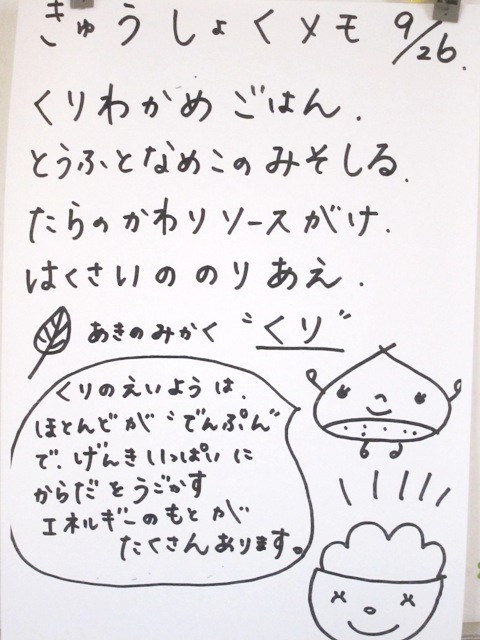 きゅうしょくメモ 9/26.
くりわかめごはん.
とうふとなめこのみそしる.
たらのかわりソースがけ.
はくさいののりあえ.
あきのみかく “くり”
くりのえいようは、
ほとんどが“でんぷん”
で、げんきいっぱいに
からだをうごかす
エネルギーのもとが
たくさんあります。